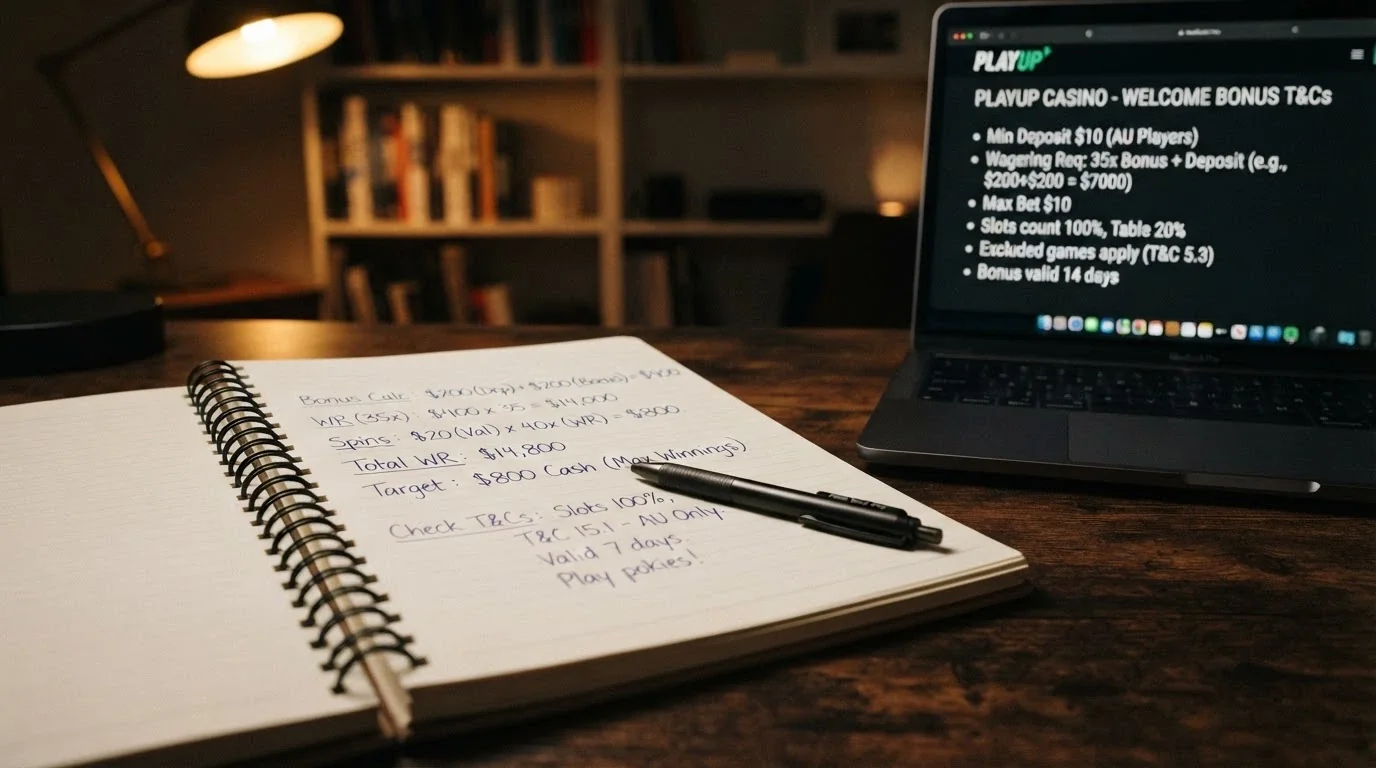 Bonus Calc: $200 (Dep) + $200 (Bonus) = $400
WR (35x): $400 x 35 = $14,000
Spins: $20 (Val) x 40x (WR) = $800.
Total WR: $14,800
Target: $800 Cash (Max Winnings)
Check T&Cs: Slots 100%,
T&C 15.1 - AU Only.
Valid 7 days.
Play pokies!
PLAYUP
PLAYUP CASINO - WELCOME BONUS T&Cs
• Min Deposit $10 (AU Players)
• Wagering Req: 35x Bonus + Deposit (e.g.,
$200+$200 = $7000)
• Max Bet $10
• Slots count 100%, Table 20%
• Excluded games apply (T&C 5.3)
• Bonus valid 14 days